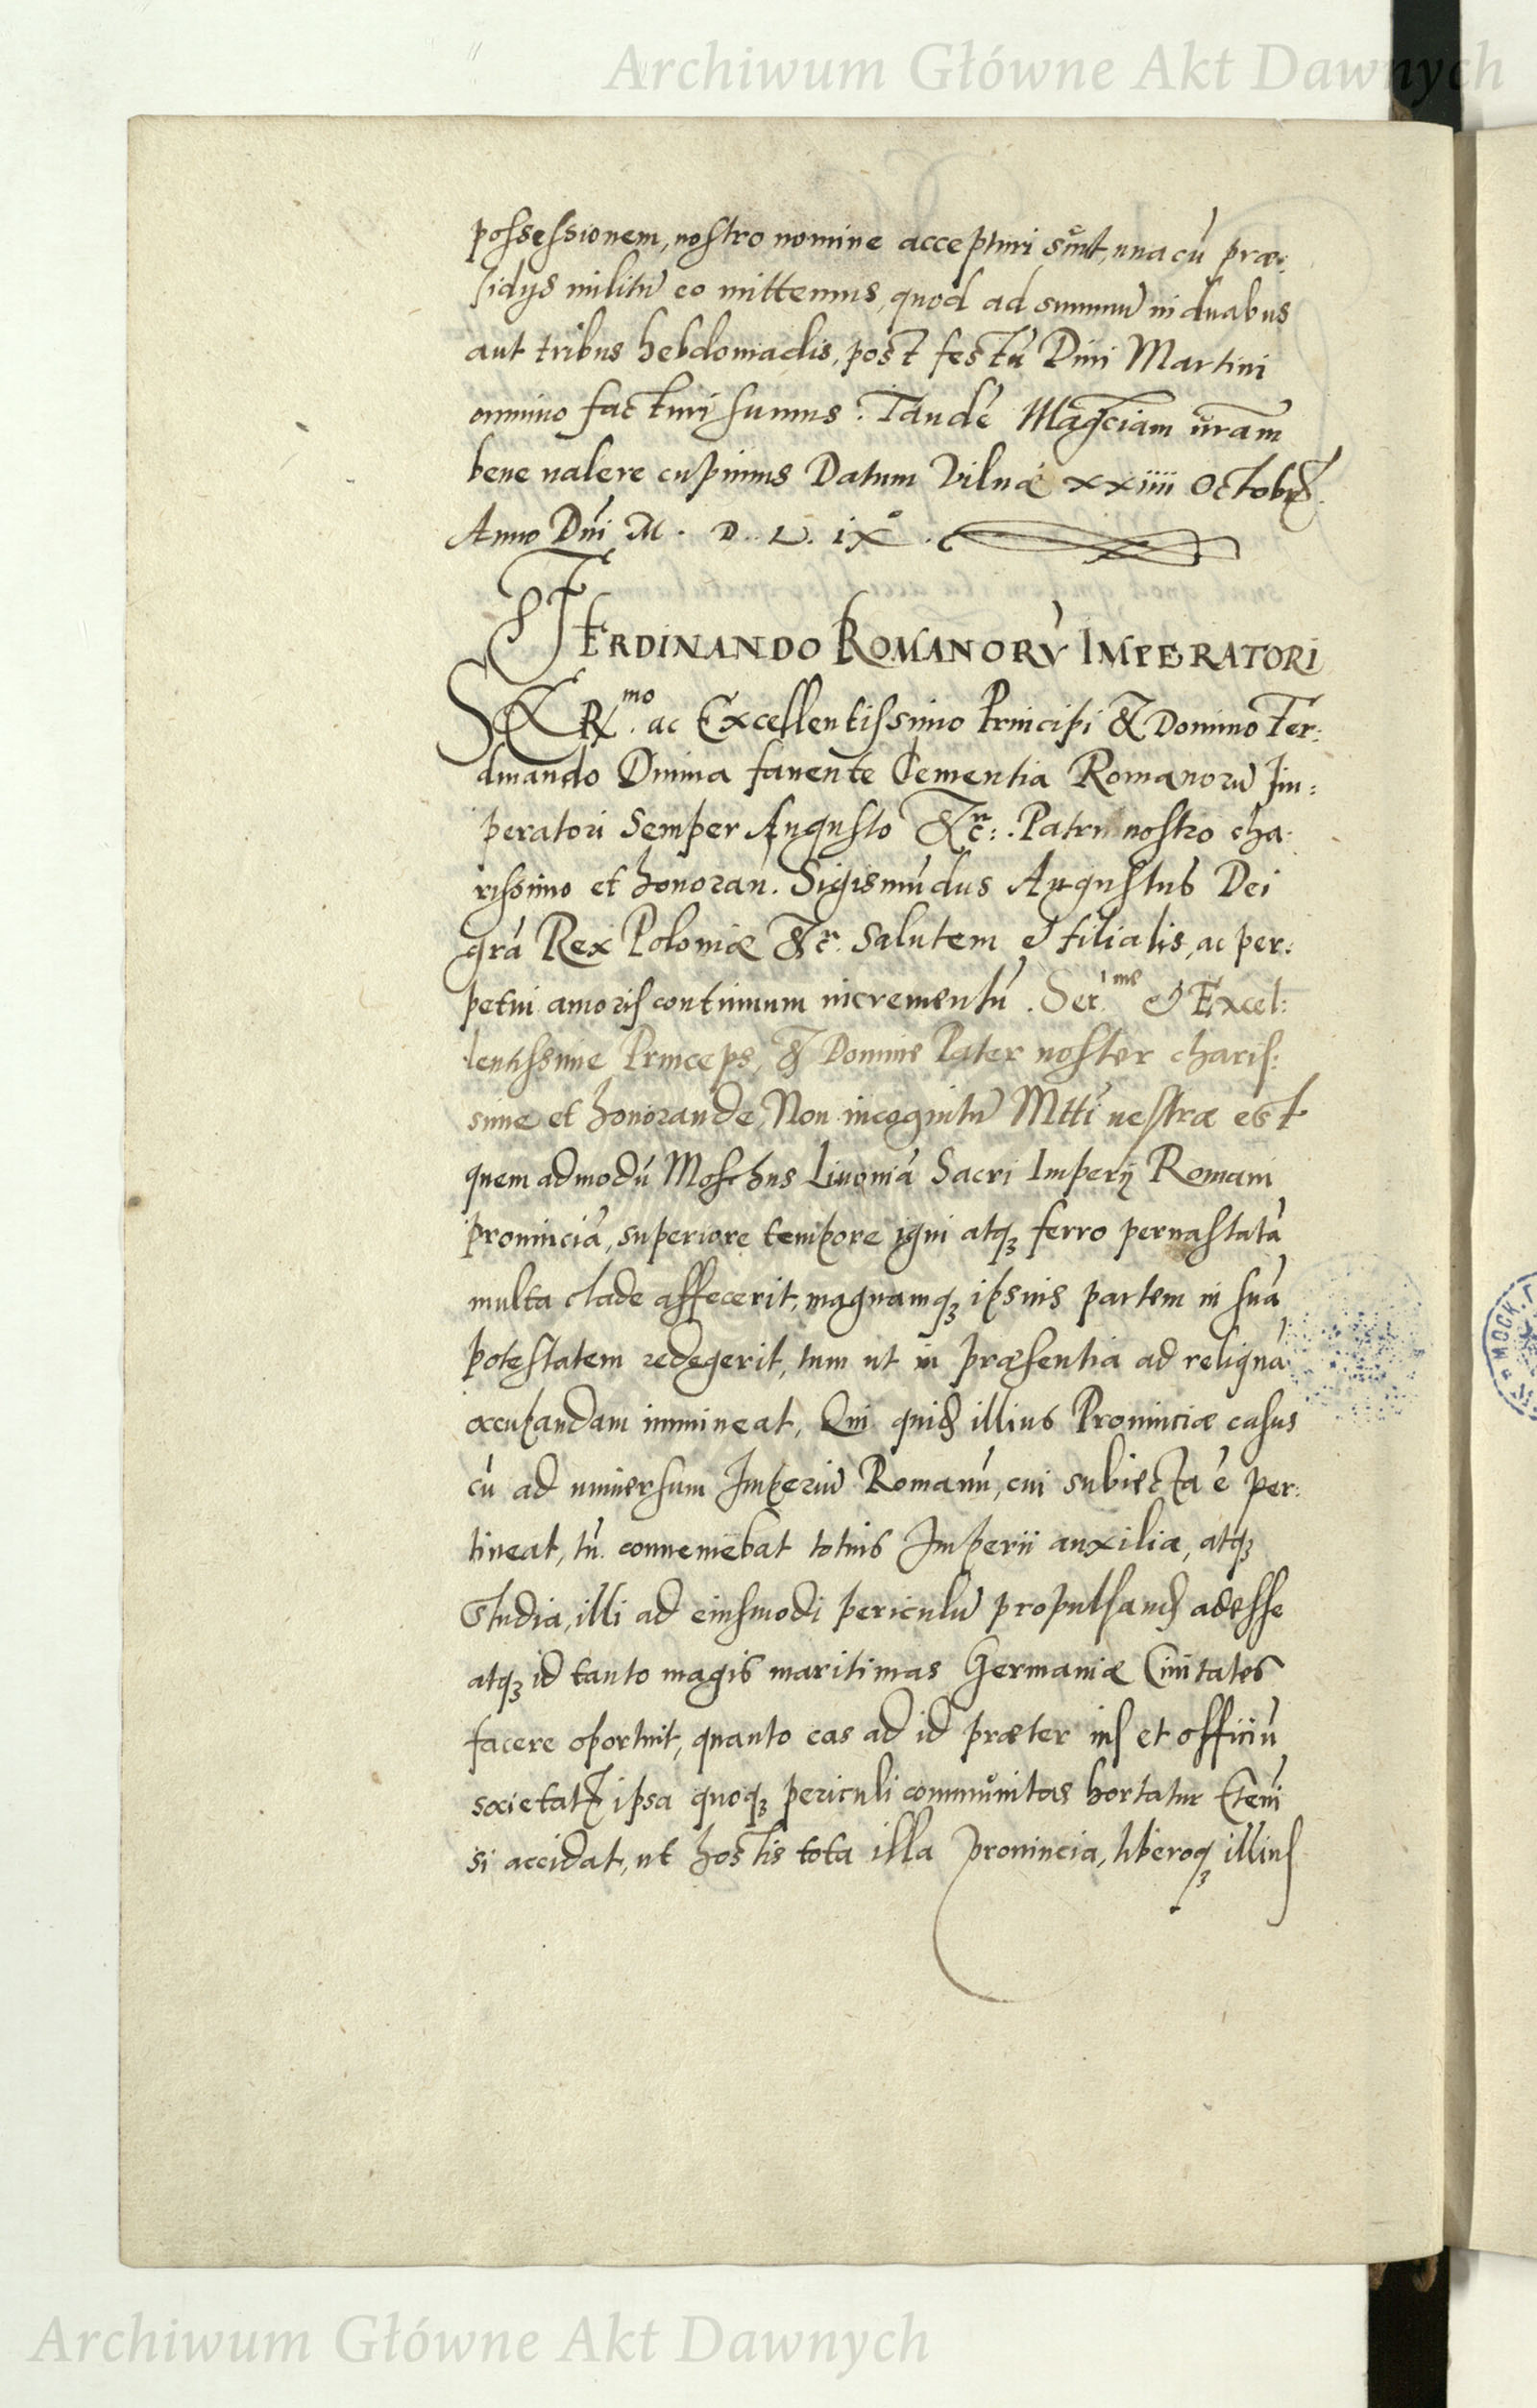 Archiwum Główne Akt Dawnych
possessionem, nostro nomine accepturi sunt, una cũ præ:
sidijs militũ eo mittemus, quod ad summũ in duabus
aut tribus hebdomadis, post festũ Diui Martini
omnino facturi sumus. Tandẽ Magciam vram
bene ualere cupimus Datum Vilnæ xxiiii Octobr
Anno Dni M. D. L. ix°.
FERDINANDO ROMANORŨ IMPERATORI
SER.mo ac Excellentissimo Principi & Domino Fer:
dinando Diuina fauente Clementia Romanorũ Im:
peratori Semper Augusto &c:. Patri nostro cha:
rissimo et honoran. Sigismũdus Augustus Dei
grã Rex Poloniæ &c. Salutem et filialis, ac per:
petui amoris continuum incrementũ. Ser.me et Excel:
lentissime Princeps, & Domine Pater noster charis:
sime et honorande, Non incognitũ Mtti uestræ est
quem admodũ Moschus Liuoniã Sacri Imperij Romani
prouinciã, superiore tempore igni atq3 ferro peruastatã
multa clade affecerit, magnamq3 ipsius partem in suã
potestatem redegerit, tum ut in præsentia ad reliquã
occupandam immineat, Qui quid illius Prouinciæ casus
cũ ad uniuersum Imperiũ Romanũ, cui subiecta ẽ per:
tineat, tũ conueniebat totius Imperii auxilia, atq3
Studia, illi ad eiusmodi periculũ propulsand adesse
atq3 id tanto magis maritimas Germaniæ Ciuitates
facere oportuit, quanto eas ad id præter ius et officiũ
societatis ipsa quoq3 periculi communitas hortatur Etenĩ
si accidat, ut hostis tota illa prouincia, liberoq3 illius
МОСК. Г
Archiwum Główne Akt Dawnych